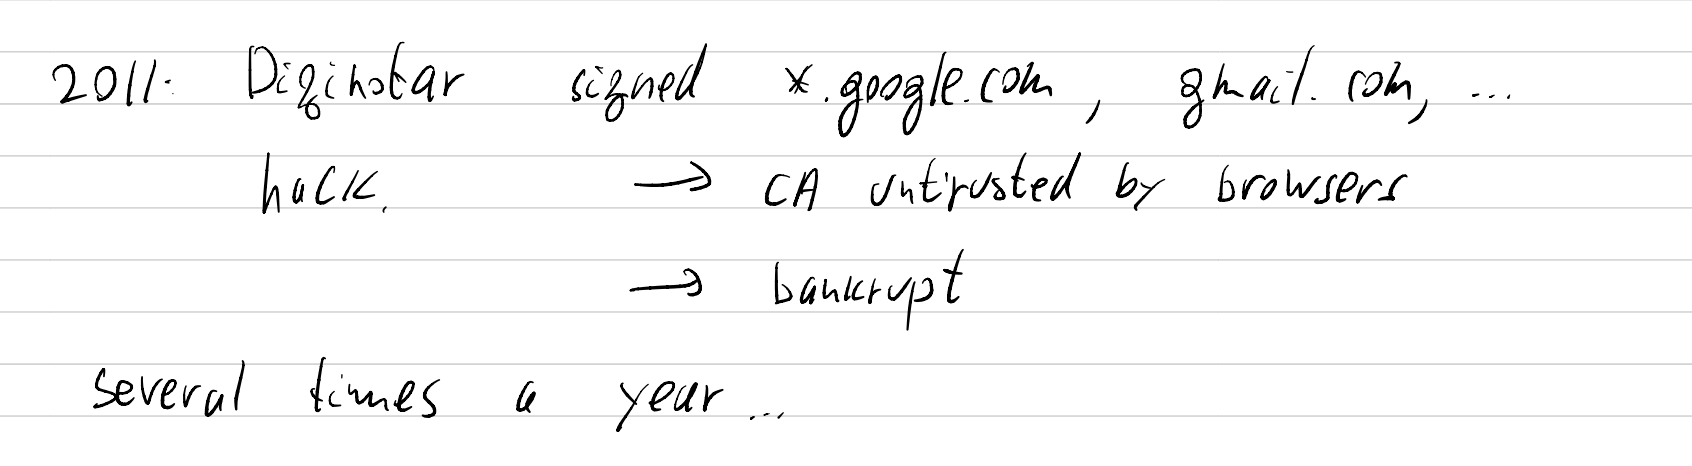 2011: Diginotar signed *.google.com, gmail.com, ...
hack. → CA untrusted by browsers
→ bankrupt
several times a year...